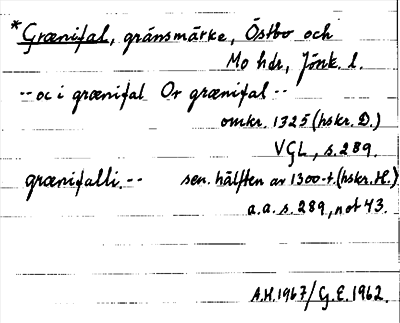 *Grænifal, gränsmärke, Östbo och
Mo hdr, Jönk. l.
-- oc i grænifal Or grænifal --
omkr. 1325 (hskr. D.)
VGL, s. 289.
grænifalli. -- sen. hälften av 1300-t. (hskr. H.)
a.a. s. 289, not 43.
A.H. 1967/G.E. 1962.